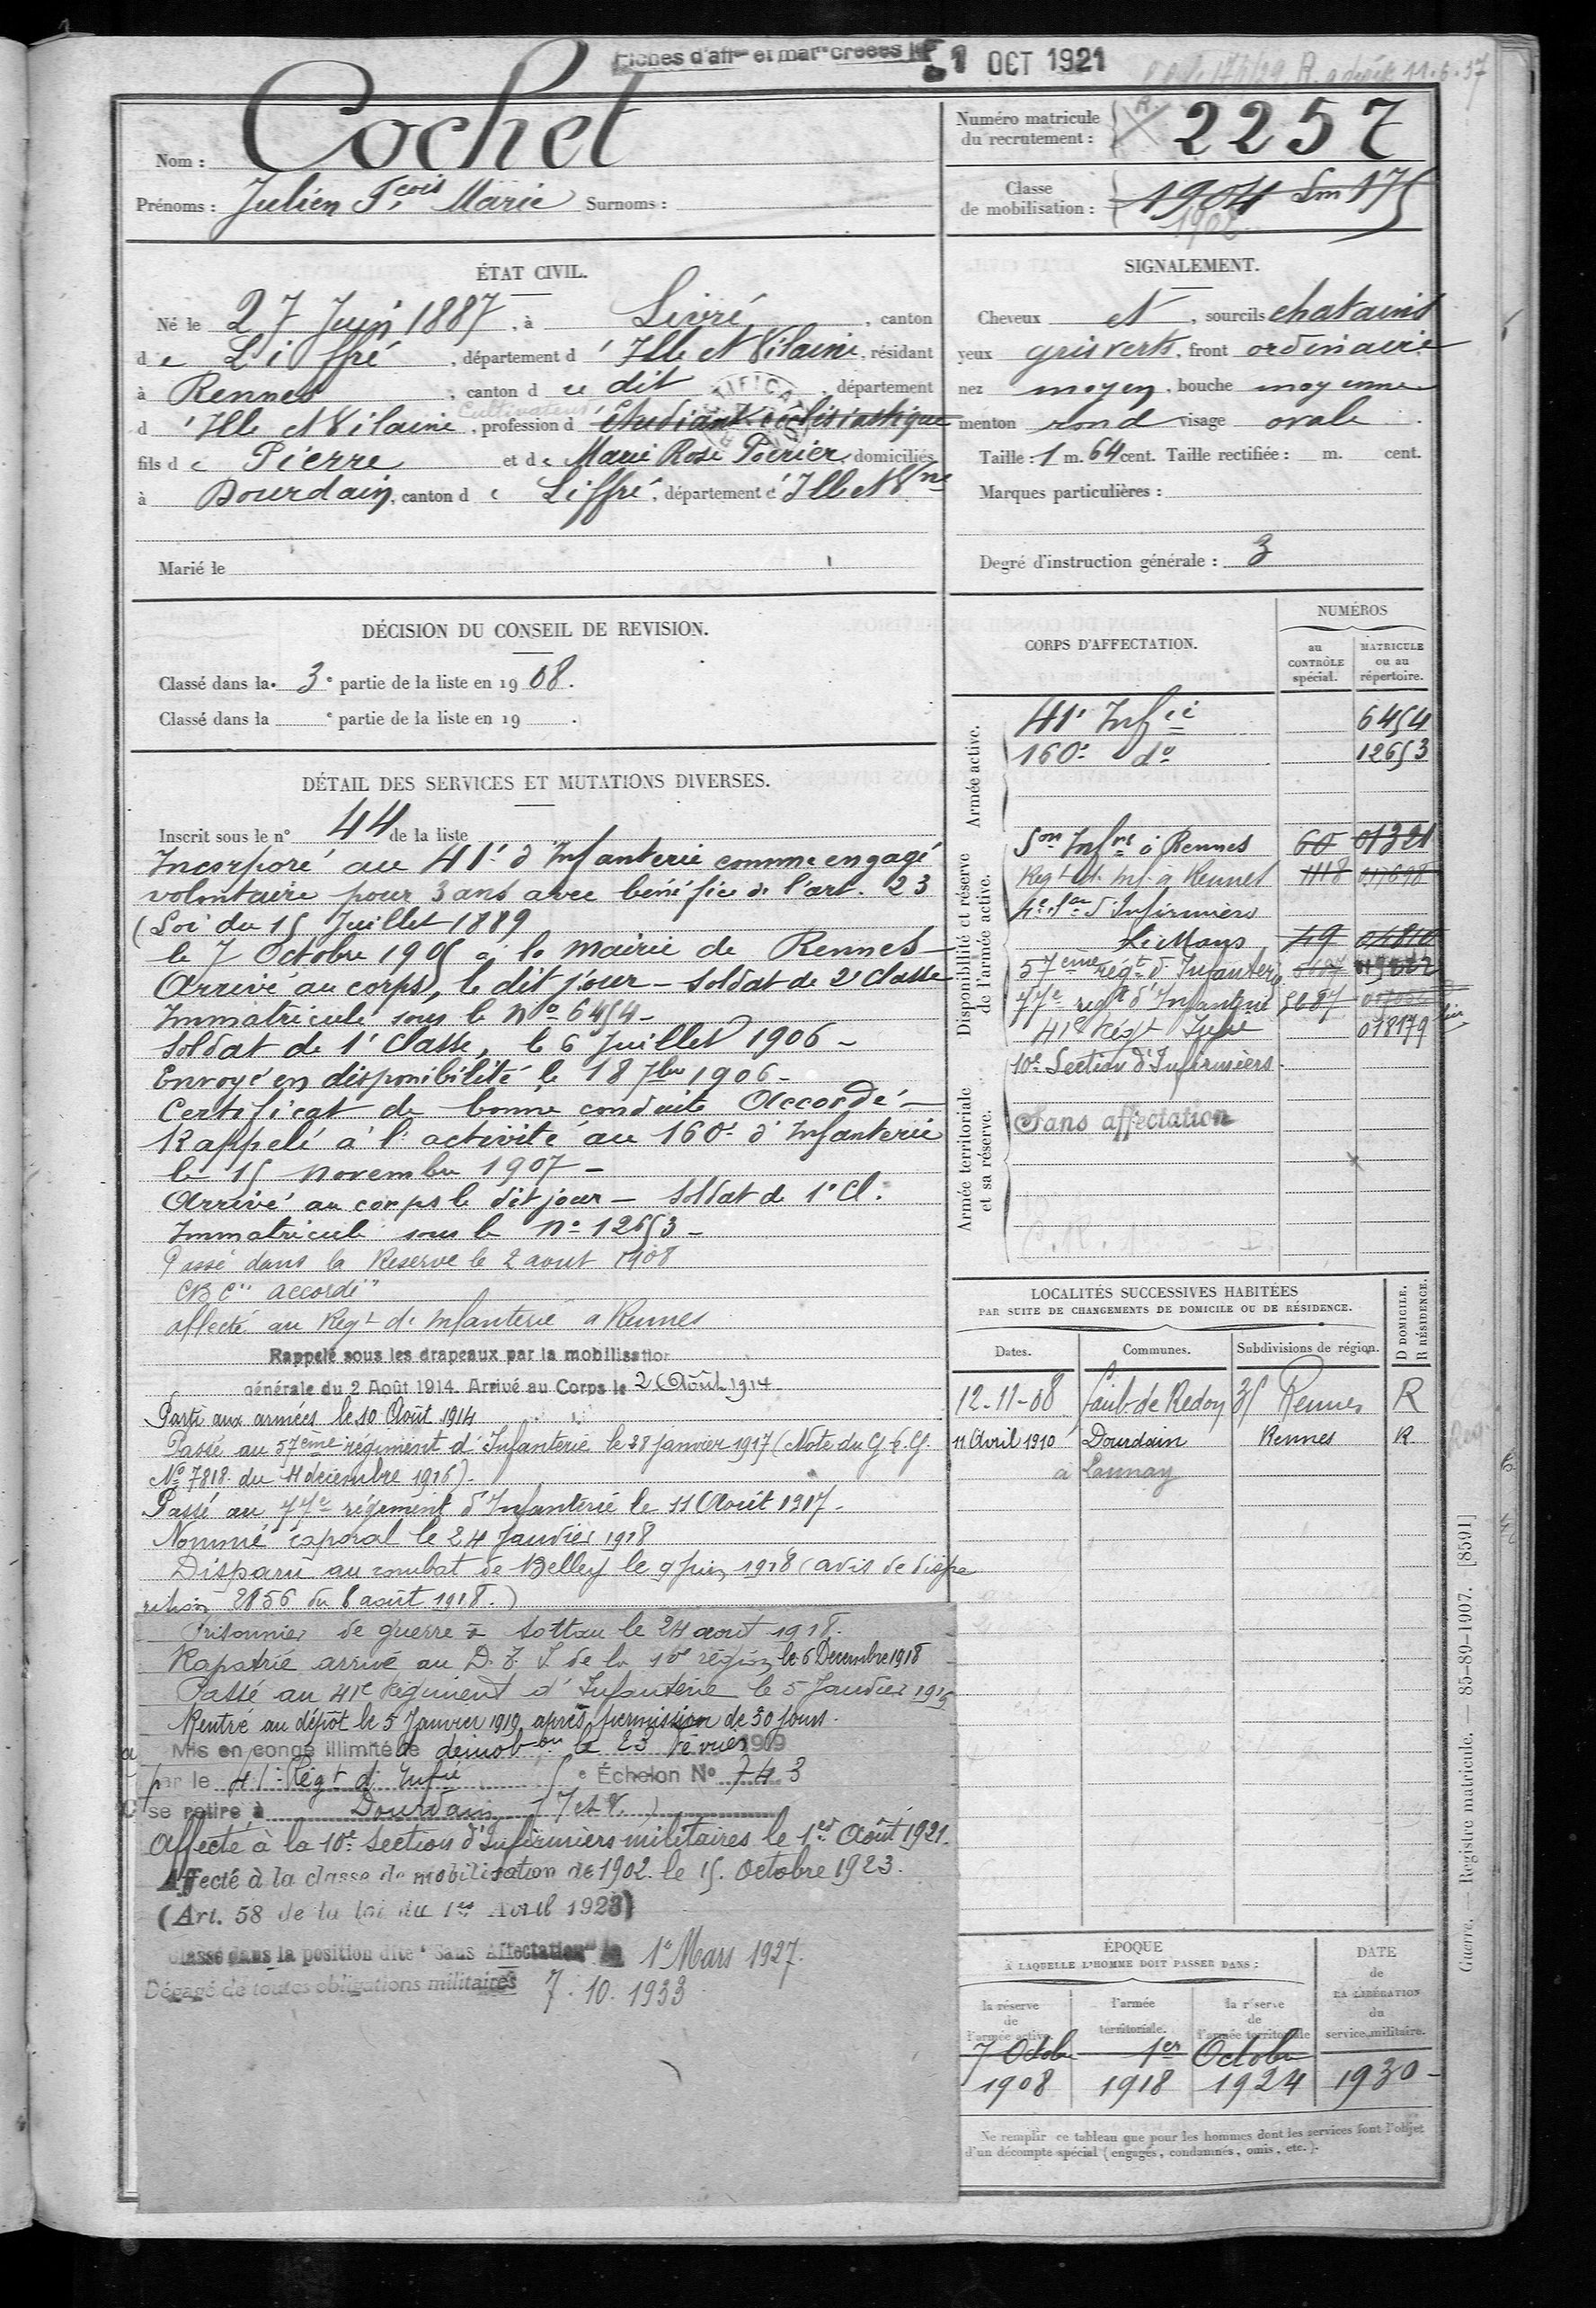 Fiches d'aff<sup>on</sup> et mat<sup>le</sup> créées le 1 OCT 1921
Nom : Cochet
Prénoms : Julien F,cois Marie Surnoms :
Numéro matricule du recrutement : 2257
Classe de mobilisation : 1904 Sm 175
1902
ÉTAT CIVIL.
Né le 27 Juin 1887, à Livré, canton
de Liffré, département d'Ille et Vilaine, résidant
à Rennes, canton du dit, département
Cultivateur
d'Ille et Vilaine, profession d'étudiant ecclésiastique
fils de Pierre et de Marie Rose Poirier, domiciliés
à Dourdain, canton de Liffré, département d'Ille et V<sup>ne</sup>
Marié le
SIGNALEMENT.
Cheveux et, sourcils chatains
yeux gris verts, front ordinaire
nez moyen, bouche moyenne
menton rond visage ovale.
Taille : 1 m. 64 cent. Taille rectifiée : m. cent.
Marques particulières :
Degré d'instruction générale : 3
DÉCISION DU CONSEIL DE REVISION.
Classé dans la 3e partie de la liste en 1908.
Classé dans la e partie de la liste en 19 .
DÉTAIL DES SERVICES ET MUTATIONS DIVERSES.
Inscrit sous le n° 44 de la liste
Incorporé au 41e d'Infanterie comme engagé
volontaire pour 3 ans avec bénéfice de l'art. 23
(Loi du 15 Juillet 1889
le 7 Octobre 1905 à la mairie de Rennes
Arrivé au corps, le dit jour - Soldat de 2e Classe
Immatriculé sous le No 6454 -
Soldat de 1e Classe, le 6 Juillet 1906 -
Envoyé en disponibilité le 18 7bre 1906 -
Certificat de bonne conduite Accordé -
Rappelé à l'activité au 160e d'Infanterie
le 15 novembre 1907 -
Arrivé au corps le dit jour - Soldat de 1e Cl.
Immatriculé sous le No 12653 -
Passé dans la Réserve le 2 aout 1908
CBC "accordé"
affecté au Regt d'Infanterie à Rennes
Rappelé sous les drapeaux par la mobilisation
générale du 2 Août 1914. Arrivé au Corps le 2 Août 1914
Parti aux armées le 10 Août 1914
Passé au 57ème régiment d'Infanterie le 28 Janvier 1917 (Note du G.Q.G.
No 7818 du 4 décembre 1916).
Passé au 77e régiment d'Infanterie le 11 Août 1917.
Nommé caporal le 24 Janvier 1918
Disparu au combat de Belley le 9 Juin 1918 (avis de dispa
rition 2856 du 8 août 1918.)
Prisonnier de guerre à Sottau le 24 aout 1918.
Rapatrié arrivé au D. de la région le 6 Décembre 1918
Passé au 41e Régiment d'Infanterie le 5 Janvier 1919
Rentré au dépôt le 5 Janvier 1919 après permission de 30 jours.
Mis en congé illimité de démobon le 23 Février 1919
par le 41e Régt d'Infie e Échelon No 743
se retire à Dourdain (I et V.)
Affecté à la 10e Section d'Infirmiers militaires le 1er Août 1921.
Affecté à la classe de mobilisation de 1902 le 15 Octobre 1923.
(Art. 58 de la loi du 1er Avril 1923)
Classé dans la position dite "Sans Affectation" le 1e Mars 1927.
Dégagé de toutes obligations militaires 7.10.1933
CORPS D'AFFECTATION.
NUMÉROS
au CONTRÔLE spécial.
MATRICULE ou au répertoire.
Armée active.
41e Infie 6454
160e do 12653
Disponibilité et réserve de l'armée active.
Son Infre à Rennes 60 01321
Regt d'Inf. à Rennes 1118
4e Son d'Infirmiers
Le Mans 49 04810
57ème régt d'Infanterie
77e regt d'Infantrie
41e Régt Infie 018179
10e Section d'Infirmiers
Armée territoriale et sa réserve.
Sans affectation
LOCALITÉS SUCCESSIVES HABITÉES
PAR SUITE DE CHANGEMENTS DE DOMICILE OU DE RÉSIDENCE.
Dates. Communes. Subdivisions de région. D DOMICILE. R RÉSIDENCE.
12-11-08 faub de Redon 35 Rennes R
11 Avril 1910 Dourdain Rennes R
à Launay
ÉPOQUE
À LAQUELLE L'HOMME DOIT PASSER DANS :
la réserve de l'armée active.
l'armée territoriale.
la réserve de l'armée territoriale
DATE de LA LIBÉRATION du service militaire.
7 Octobre 1er Octobre
1908 1918 1924 1930 -
Ne remplir ce tableau que pour les hommes dont les services font l'objet
d'un décompte spécial (engagés, condamnés, omis, etc.).
Guerre. — Registre matricule. — 85-89-1907. [8591]